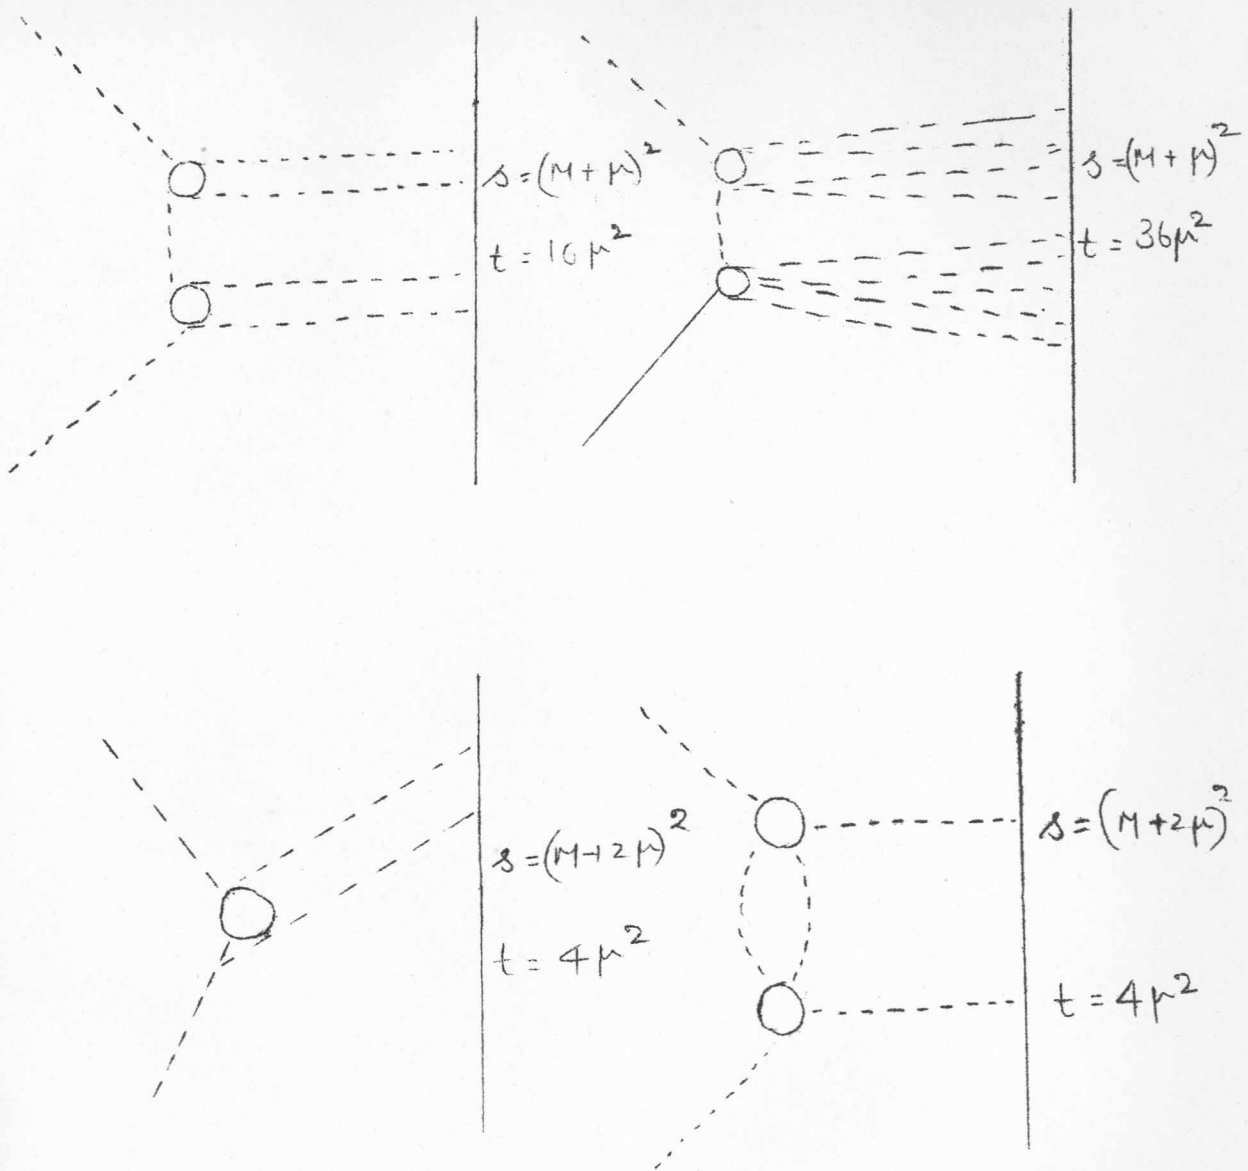 s=(M+μ)²
t=16μ²
s=(M+μ)²
t=36μ²
s=(M+2μ)²
t=4μ²
s=(M+2μ)²
t=4μ²